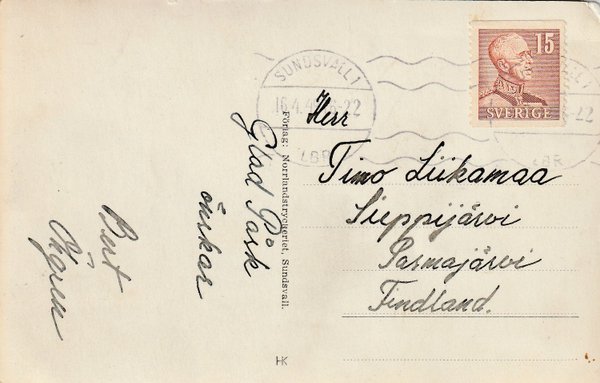 Glad Påsk
önskar
Bert
Förlag: Norrlandstryckeriet, Sundsvall.
HK
SUNDSVALL 1
16.4.4
-22
LBR
15
SVERIGE
Herr
Timo Liikamaa
Sieppijärvi
Pasmajärvi
Findland.